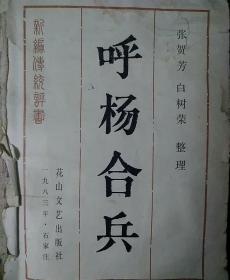 张贺芳 白树荣 整理
呼杨合兵
新编传统评书
花山文艺出版社
一九八三年·石家庄